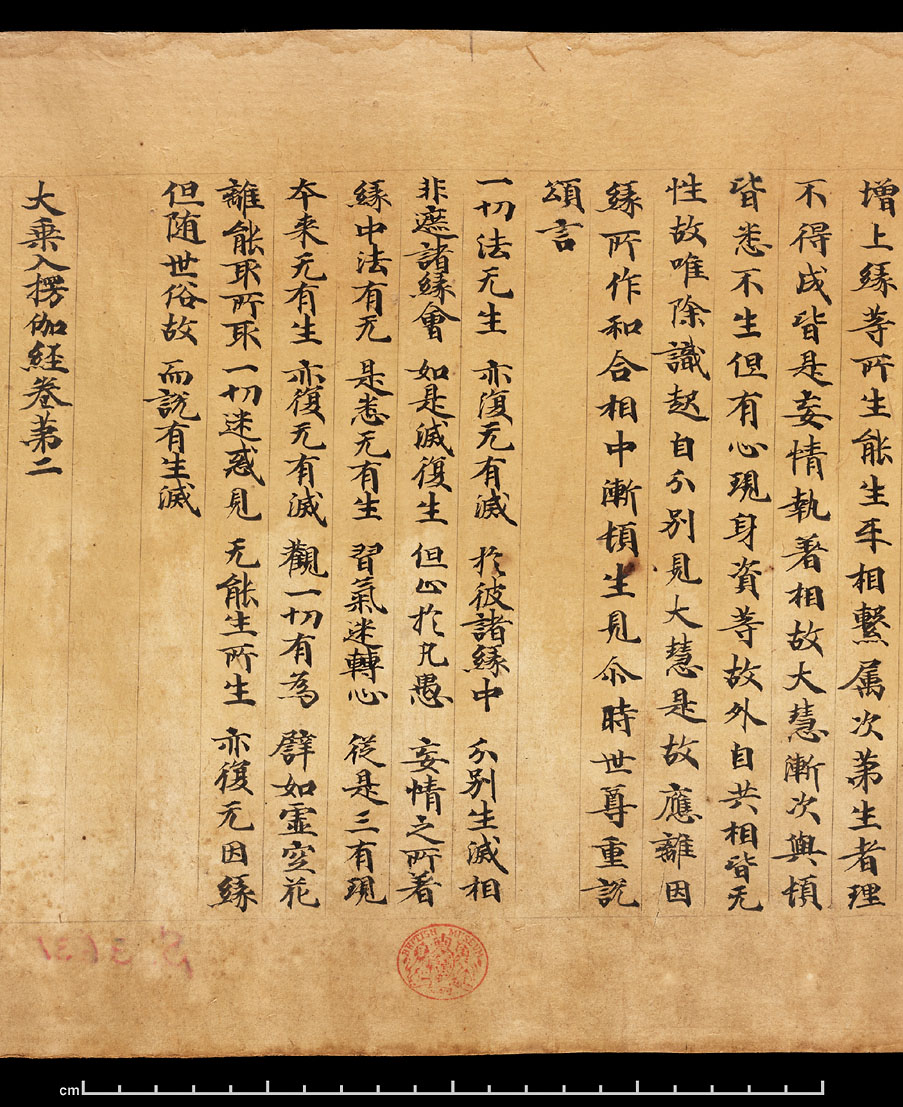 增上緣等所生能生牙相繫属次苐生者理
不得成皆是妄情執著相故大慧漸次與頓
皆悉不生但有心現身資等故外自共相皆无
性故唯除識起自分別見大慧是故應離因
緣所作和合相中漸頓生見尒時世尊重說
頌言
一切法无生 亦復无有滅 於彼諸緣中 分別生滅相
非遮諸緣會 如是滅復生 但止於凡愚 妄情之所著
緣中法有无 是悉无有生 習氣迷轉心 從是三有現
夲来无有生 亦復无有滅 觀一切有為 譬如虛空花
離能取所取 一切迷惑見 无能生所生 亦復无因緣
但随世俗故 而說有生滅
大乗入楞伽經卷苐二
BRITISH MUSEUM
cm